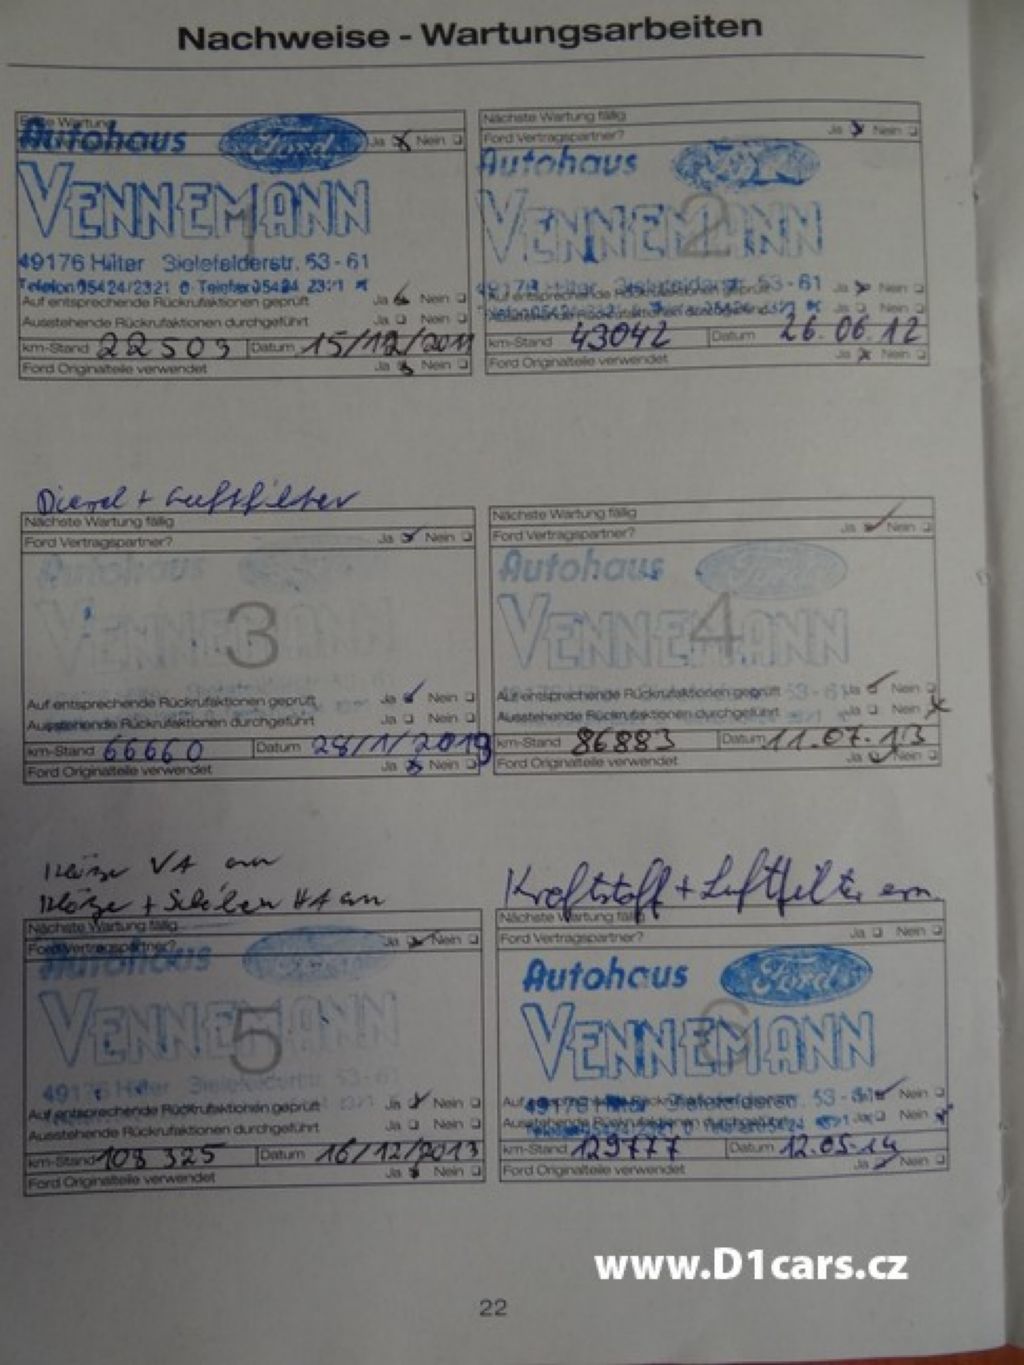 Nachweise - Wartungsarbeiten
Erste Wartung
Autohaus Ford Ja Nein
VENNEMANN
1
49176 Hilter Bielefelderstr. 53 - 61
Telefon 05424/2321 Telefax 05424
Auf entsprechende Rückrufaktionen geprüft Ja Nein
Ausstehende Rückrufaktionen durchgeführt Ja Nein
km-Stand 22503 Datum 15/12/2011
Ford Originalteile verwendet Ja Nein
Nächste Wartung fällig
Ford Vertragspartner? Ja Nein
Autohaus Ford
VENNEMANN
2
49176 Hilter Bielefelderstr. 53 - 61
Auf entsprechende Rückrufaktionen geprüft Ja Nein
km-Stand 43042 Datum 26.06.12
Ford Originalteile verwendet Ja Nein
Diesel + Luftfilter
Nächste Wartung fällig
Ford Vertragspartner? Ja Nein
Autohaus
VENNEMANN
3
Auf entsprechende Rückrufaktionen geprüft Ja Nein
Ausstehende Rückrufaktionen durchgeführt Ja Nein
km-Stand 66660 Datum 28/1/2013
Ford Originalteile verwendet Ja Nein
Nächste Wartung fällig
Ford Vertragspartner? Ja Nein
Autohaus Ford
VENNEMANN
4
Auf entsprechende Rückrufaktionen geprüft Ja Nein
Ausstehende Rückrufaktionen durchgeführt Ja Nein
km-Stand 86883 Datum 11.07.13
Ford Originalteile verwendet Ja Nein
Klötze VA ern
Klötze + Scheiben HA ern
Nächste Wartung fällig
Ford Vertragspartner? Ja Nein
Autohaus
VENNEMANN
5
49176 Hilter Bielefelderstr. 53-61
Auf entsprechende Rückrufaktionen geprüft Ja Nein
Ausstehende Rückrufaktionen durchgeführt Ja Nein
km-Stand 108 325 Datum 16/12/2013
Ford Originalteile verwendet Ja Nein
Kraftstoff + Luftfilter ern.
Nächste Wartung fällig
Ford Vertragspartner? Ja Nein
Autohaus Ford
VENNEMANN
6
49176 Hilter Bielefelderstr. 53 - 61
Auf entsprechende Rückrufaktionen geprüft Ja Nein
Ausstehende Rückrufaktionen durchgeführt Ja Nein
km-Stand 129777 Datum 12.05.14
Ford Originalteile verwendet Ja Nein
www.D1cars.cz
22